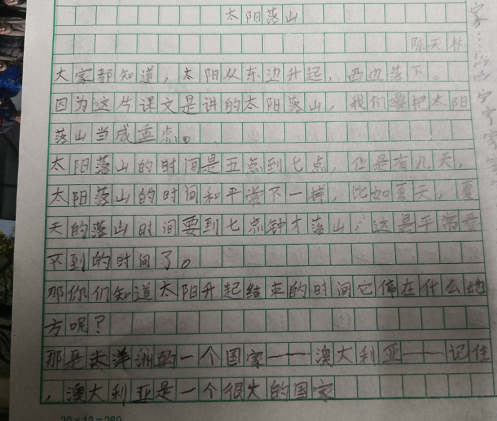 太阳落山
陈天
大家都知道，太阳从东边升起，西边落下。
因为这片课文是讲的太阳落山，我们要把太阳
落山当成重点。
太阳落山的时间是五点到七点，但是有几天，
太阳落山的时间和平常不一样，比如夏天，夏
天的落山时间要到七点钟才落山，这是平常
不到的时间了。
那你们知道太阳升起结束的时间它停在什么地
方呢？
那是大洋洲的一个国家——澳大利亚——记住
，澳大利亚是一个很大的国家